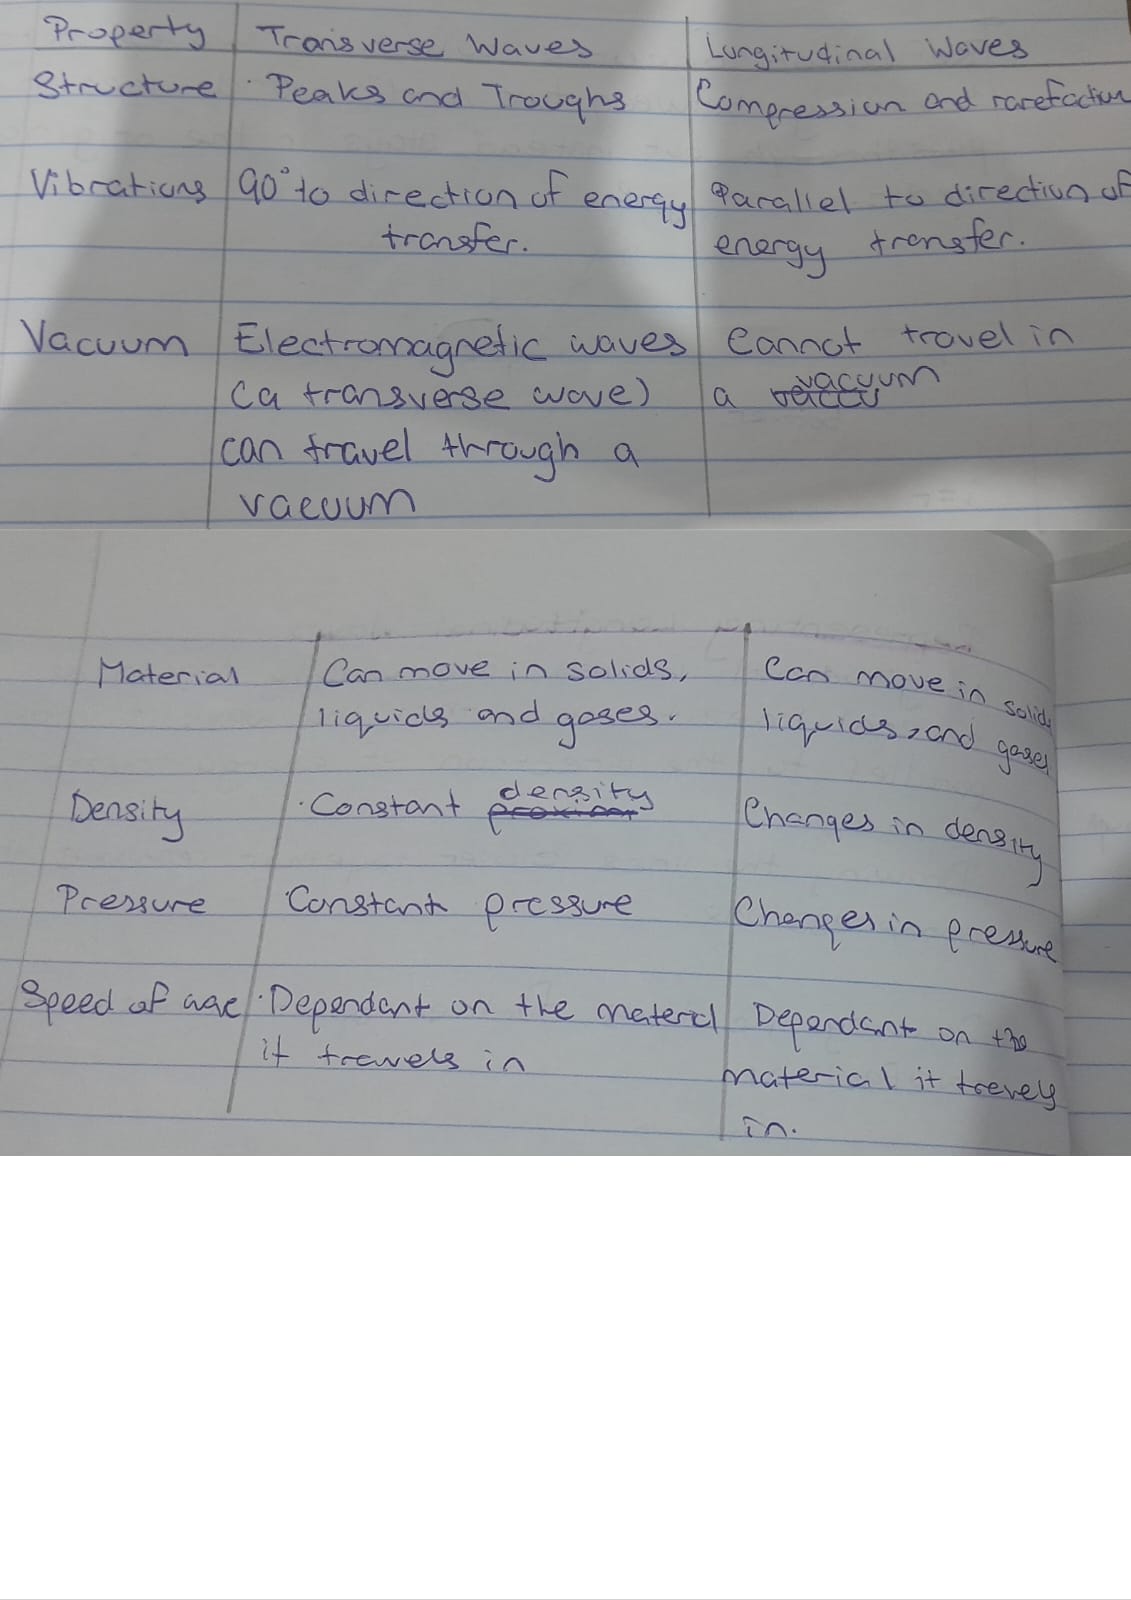 Property Transverse Waves Lungitudinal Waves
Structure · Peaks and Troughs Compression and rarefaction
Vibrations 90° to direction of energy Parallel to direction of
transfer. energy transfer.
Vacuum Electromagnetic waves Cannot travel in
(a transverse wave) a vacuum
can travel through a
vacuum
Material Can move in solids, Can move in solids
liquids and gases. liquids, and gases
Density · Constant density Changes in density
Pressure · Constant pressure Changes in pressure
Speed of · Dependant on the material Dependant on the
it travels in material it
in.